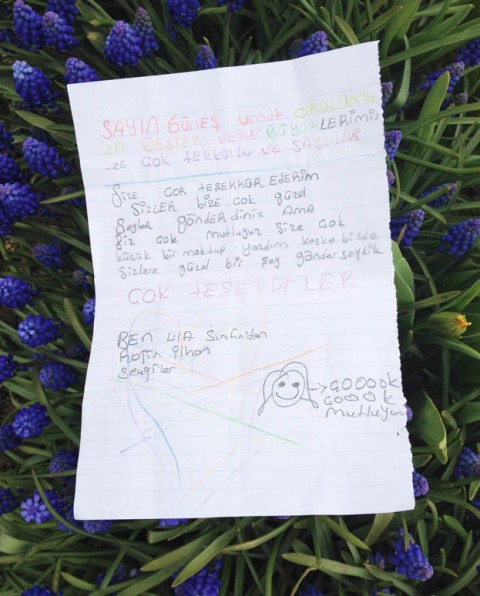 SAYIN GÜNEŞ umut OKULUMU
ZA DESTEK VERE BÜYÜKLERİMİZ
ZE ÇOK TEKKÜRLER VE SAYGILAR
Size ÇOK TEŞEKKÜR EDERİM
SİZLER bize çok güzel
Şeyler GÖNDERDİNİZ AMA
Biz çok mutluyuz size çok
küçük bir mektup yazdım keşke bizde
Sizlere güzel bir şey gönderseydik
ÇOK TEŞEKÜRLER
BEN 4/A Sınıfından
İlhan
Sevgiler
→ ÇOOOOK
ÇOOOK
mutluyuz